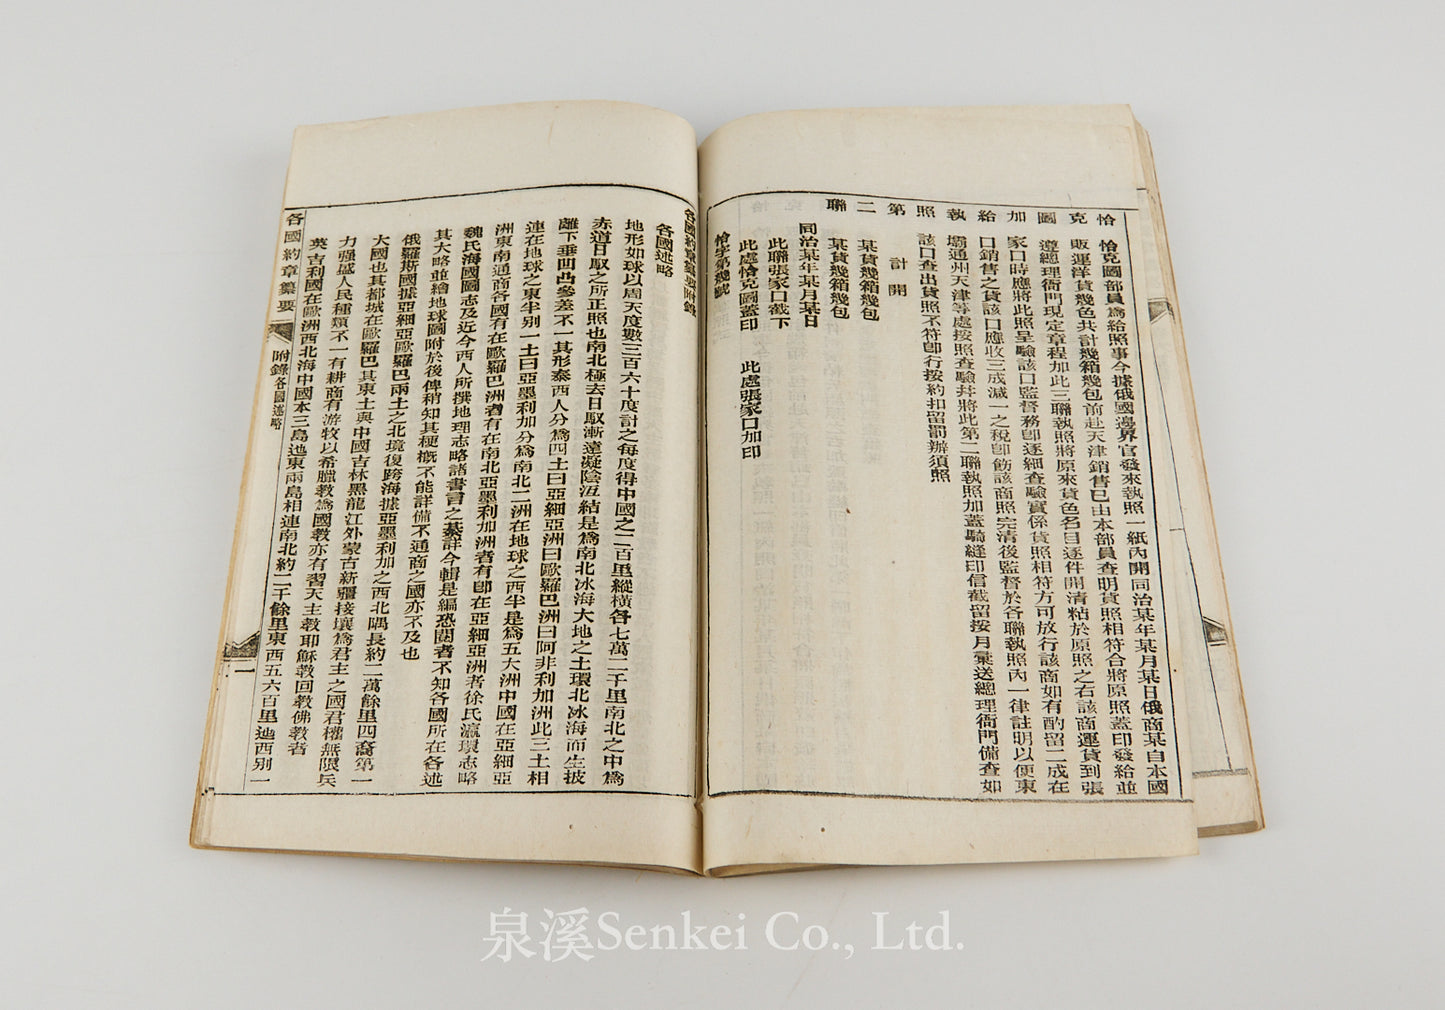 恰克圖加給執照第二聯
恰克圖部員爲給照事今據俄國邊界官發來執照一紙內開同治某年某月某日俄商某自本國
販運洋貨幾色共計幾箱幾包前赴天津銷售已由本部員查明貨照相符合將原照蓋印發給並
遵總理衙門現定章程加此三聯執照將原來貨色名目逐件開清粘於原照之右該商運貨到張
家口時應將此照呈驗該口監督務卽逐細查驗實係貨照相符方可放行該商如有酌留二成在
口銷售之貨該口應收三成減一之稅卽飭該商照完清後監督於各聯執照內一律註明以便東
壩通州天津等處按照查驗幷將此第二聯執照加蓋騎縫印信截留按月彙送總理衙門備查如
該口查出貨照不符卽行按約扣留罰辦須照
計開
某貨幾箱幾包
某貨幾箱幾包
同治某年某月某日
此聯張家口截下
此處恰克圖蓋印 此處張家口加印
恰字第幾號
各國約章纂要附錄
各國述略
地形如球以周天度數三百六十度計之每度得中國之二百里縱橫各七萬二千里南北之中爲
赤道日馭之所正照也南北極去日馭漸遠凝陰沍結是爲南北冰海大地之土環北冰海而生披
離下垂凹凸參差不一其形泰西人分爲四土曰亞細亞洲曰歐羅巴洲曰阿非利加洲此三土相
連在地球之東半別一土曰亞墨利加分爲南北二洲在地球之西半是爲五大洲中國在亞細亞
洲東南通商各國有在歐羅巴洲者有在南北亞墨利加洲者有卽在亞細亞洲者徐氏瀛環志略
魏氏海國圖志及近今西人所撰地理志略諸書言之綦詳今輯是編恐閱者不知各國所在各述
其大略並繪地球圖附於後俾稍知其梗槪不能詳備不通商之國亦不及也
俄羅斯國據亞細亞歐羅巴兩土之北境復跨海據亞墨利加之西北隅長約二萬餘里四裔第一
大國也其都城在歐羅巴其東土與中國吉林黑龍江外蒙古新疆接壤爲君主之國君權無限兵
力强盛人民種類不一有耕商有游牧以希臘教爲國教亦有習天主教耶穌教回教佛教者
英吉利國在歐洲西北海中國本三島迆東兩島相連南北約二千餘里東西五六百里迆西別一
各國約章纂要
附錄各國述略
一
泉溪Senkei Co., Ltd.